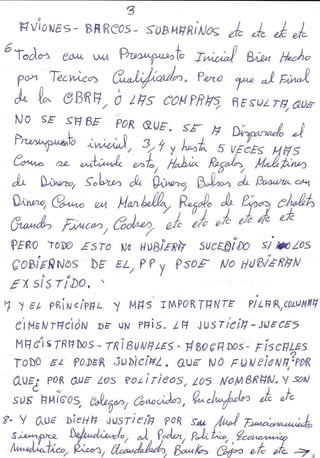 3
AVIONES - BARCOS - SUBMARINOS etc etc etc etc
6 Todos con un Presupuesto Inicial Bien Hecho
por Tecnicos Cualificados. Pero que al Final
de la OBRA, Ó LAS COMPRAS, RESULTA, QUE
NO SE SABE POR QUE. SE A Disparado el
Presupuesto inicial, 3, 4 y hasta 5 VECES MAS
Como se entiende esto, Habia Regalos, Maletines
de Dinero, Sobres de Dinero, Bolsas de Basura con
Dinero, Como en Marbella, Regalo de Pisos, Chalets
Grandes Fincas, Coches, etc etc etc etc etc etc
PERO TODO ESTO NO HUBIERA SUCEDIDO SI LOS
GOBIERNOS DE EL, PP y PSOE NO HUBIERAN
EXSISTIDO.
7 Y EL PRINCIPAL Y MAS IMPORTANTE PILAR, COLUMNA
CIMENTACIÓN DE UN PAIS. LA JUSTICIA - JUECES
MAGISTRADOS - TRIBUNALES - ABOGADOS - FISCALES
TODO EL PODER JUDICIAL. QUE NO FUNCIONA, POR
QUE; POR QUE LOS POLITICOS, LOS NOMBRAN. Y SON
SUS AMIGOS, Colegas, Conocidos, Enchufados etc etc
8- Y QUE DICHA JUSTICIA POR SU Mal Funcionamiento
siempre Defendiendo, al Poder, Politico, Economico
Mediatico, Ricos, Acaudalados, Bankos Cajas etc etc →